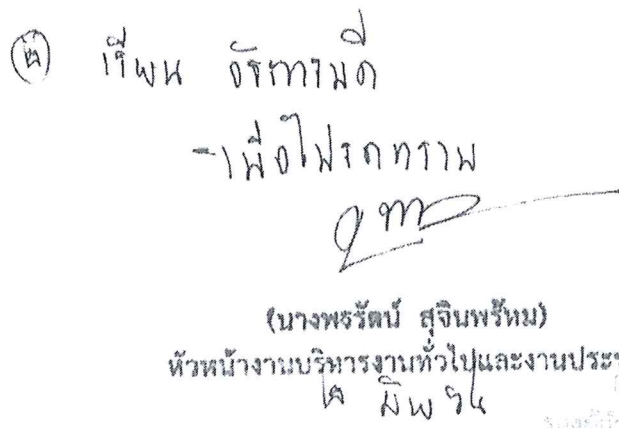 ๒ เรียน อธิการบดี
-เพื่อโปรดทราบ
(นางพรรัตน์ สุจินพรัหม)
หัวหน้างานบริหารงานทั่วไปและงานประช
๒ มิย